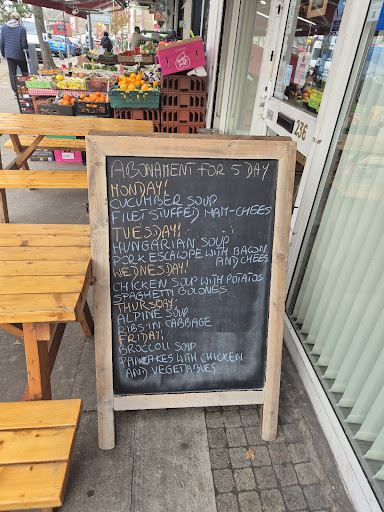 ABONAMENT FOR 5 DAY
MONDAY!
CUCUMBER SOUP
FILET STUFFED HAM-CHEES
TUESDAY!
HUNGARIAN SOUP
PORK ESCALOPE WITH BACON
AND CHEES
WEDNESDAY!
CHICKEN SOUP WITH POTATOS
SPAGHETTI BOLONES
THURSDAY!
ALPINE SOUP
RIBS IN CABBAGE
FRIDAY!
BROCCOLI SOUP
PANCAKES WITH CHICKEN
AND VEGETABLES
236